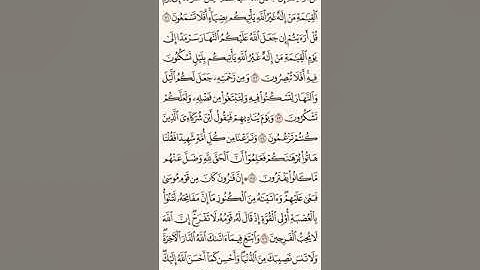 ٱلۡقِيَٰمَةِ مَنۡ إِلَٰهٌ غَيۡرُ ٱللَّهِ يَأۡتِيكُم بِضِيَآءٍۚ أَفَلَا تَسۡمَعُونَ ٧١
قُلۡ أَرَءَيۡتُمۡ إِن جَعَلَ ٱللَّهُ عَلَيۡكُمُ ٱلنَّهَارَ سَرۡمَدًا إِلَىٰ
يَوۡمِ ٱلۡقِيَٰمَةِ مَنۡ إِلَٰهٌ غَيۡرُ ٱللَّهِ يَأۡتِيكُم بِلَيۡلٖ تَسۡكُنُونَ
فِيهِۚ أَفَلَا تُبۡصِرُونَ ٧٢ وَمِن رَّحۡمَتِهِۦ جَعَلَ لَكُمُ ٱلَّيۡلَ
وَٱلنَّهَارَ لِتَسۡكُنُواْ فِيهِ وَلِتَبۡتَغُواْ مِن فَضۡلِهِۦ وَلَعَلَّكُمۡ
تَشۡكُرُونَ ٧٣ وَيَوۡمَ يُنَادِيهِمۡ فَيَقُولُ أَيۡنَ شُرَكَآءِيَ ٱلَّذِينَ
كُنتُمۡ تَزۡعُمُونَ ٧٤ وَنَزَعۡنَا مِن كُلِّ أُمَّةٖ شَهِيدٗا فَقُلۡنَا
هَاتُواْ بُرۡهَٰنَكُمۡ فَعَلِمُوٓاْ أَنَّ ٱلۡحَقَّ لِلَّهِ وَضَلَّ عَنۡهُم
مَّا كَانُواْ يَفۡتَرُونَ ٧٥ ۞ إِنَّ قَٰرُونَ كَانَ مِن قَوۡمِ مُوسَىٰ
فَبَغَىٰ عَلَيۡهِمۡۖ وَءَاتَيۡنَٰهُ مِنَ ٱلۡكُنُوزِ مَآ إِنَّ مَفَاتِحَهُۥ لَتَنُوٓأُ
بِٱلۡعُصۡبَةِ أُوْلِي ٱلۡقُوَّةِ إِذۡ قَالَ لَهُۥ قَوۡمُهُۥ لَا تَفۡرَحۡۖ إِنَّ ٱللَّهَ
لَا يُحِبُّ ٱلۡفَرِحِينَ ٧٦ وَٱبۡتَغِ فِيمَآ ءَاتَىٰكَ ٱللَّهُ ٱلدَّارَ ٱلۡأٓخِرَةَۖ
وَلَا تَنسَ نَصِيبَكَ مِنَ ٱلدُّنۡيَاۖ وَأَحۡسِن كَمَآ أَحۡسَنَ ٱللَّهُ إِلَيۡكَۖ